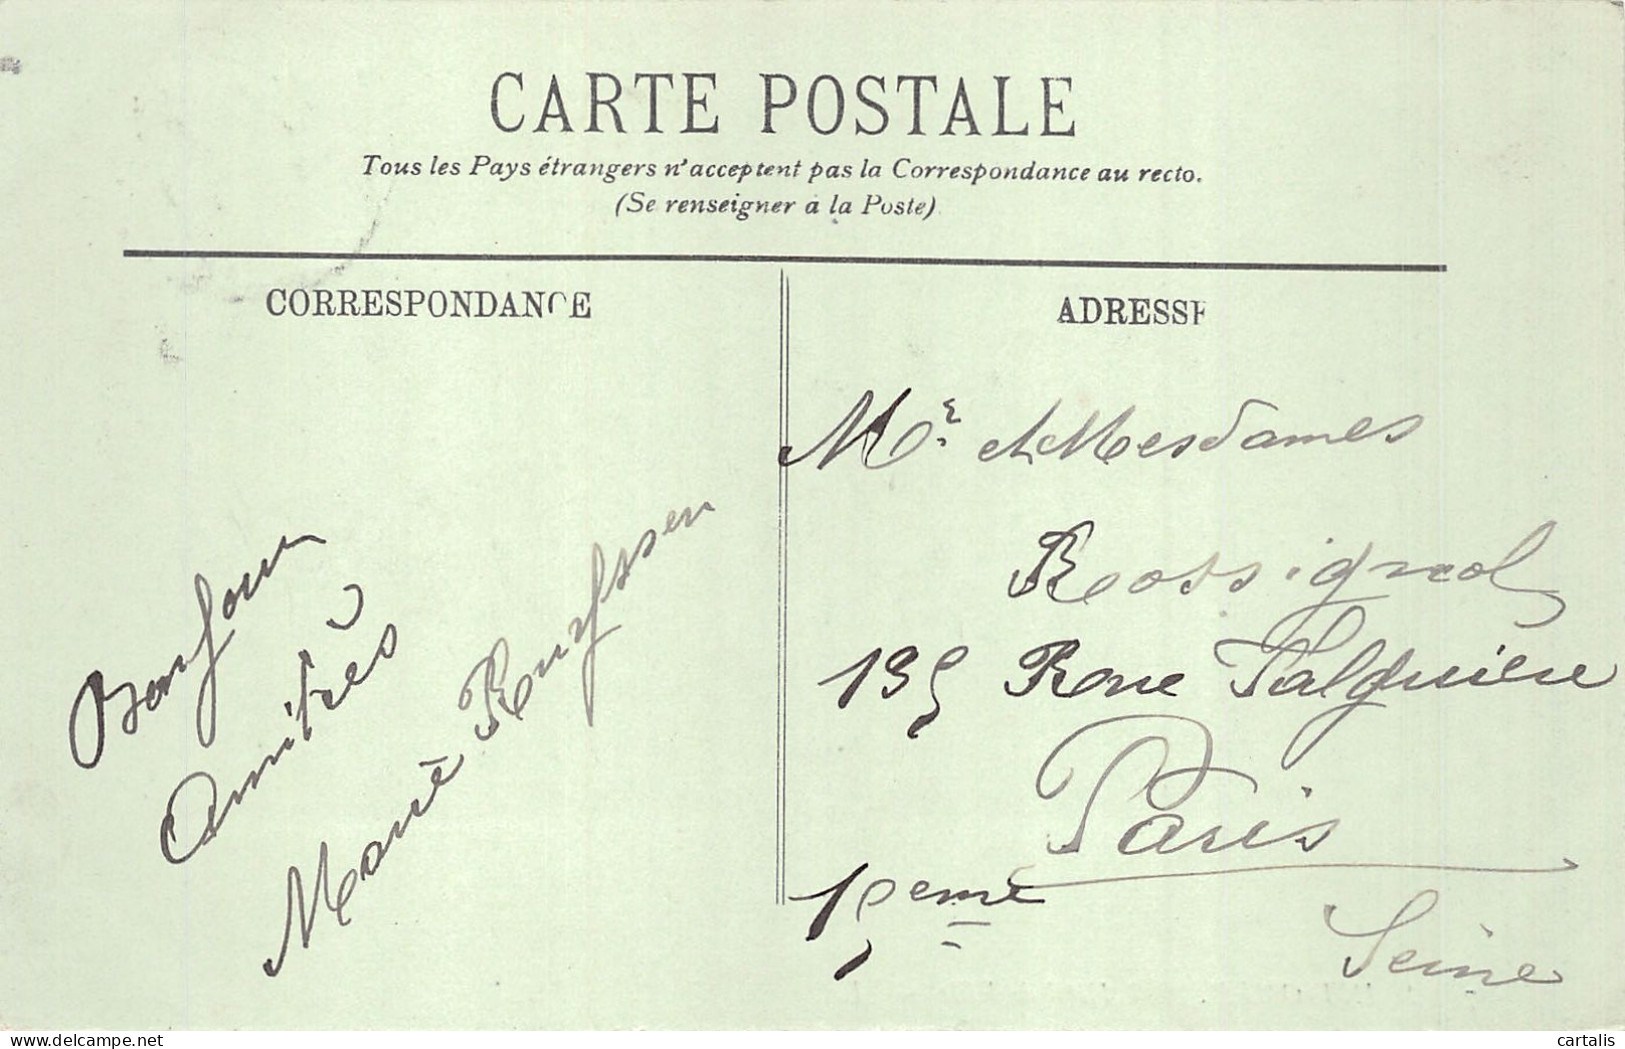 CARTE POSTALE
Tous les Pays étrangers n'acceptent pas la Correspondance au recto.
(Se renseigner à la Poste)
CORRESPONDANCE
ADRESSE
Bonjour
Amitiés
Marie
Mr et Mesdames
Rossignol
135 Rue Falguière
Paris
15eme
Seine
delcampe.net
cartalis